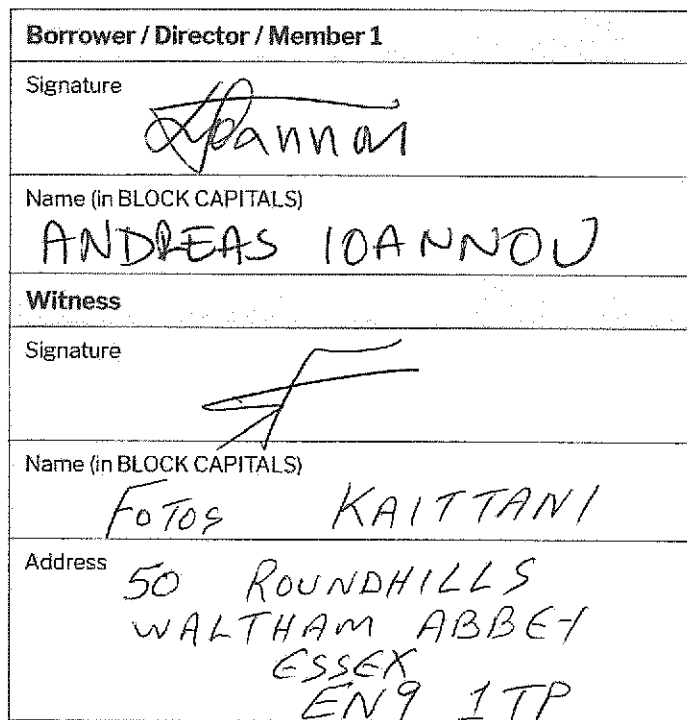 Borrower / Director / Member 1
Signature
Ioannou
Name (in BLOCK CAPITALS)
ANDREAS IOANNOU
Witness
Signature
Name (in BLOCK CAPITALS)
FOTOS KAITTANI
Address 50 ROUNDHILLS
WALTHAM ABBEY
ESSEX
EN9 1TP